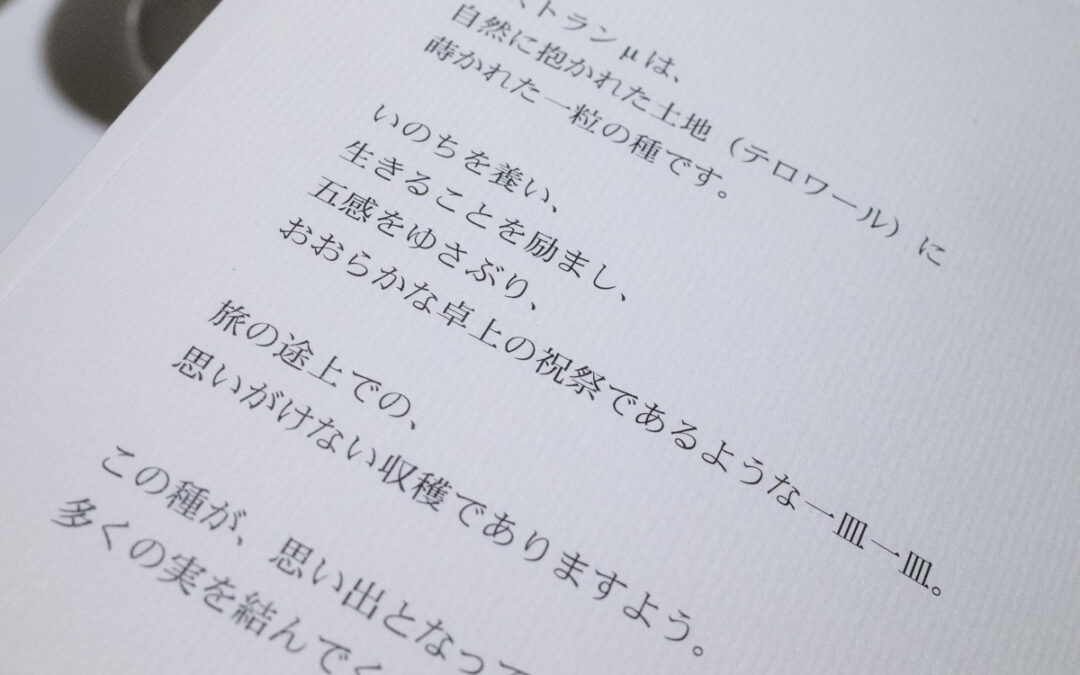 ストランμは、
自然に抱かれた土地（テロワール）に
蒔かれた一粒の種です。
いのちを養い、
生きることを励まし、
五感をゆさぶり、
おおらかな卓上の祝祭であるような一皿一皿。
旅の途上での、
思いがけない収穫でありますよう。
この種が、思い出となって
多くの実を結んでく